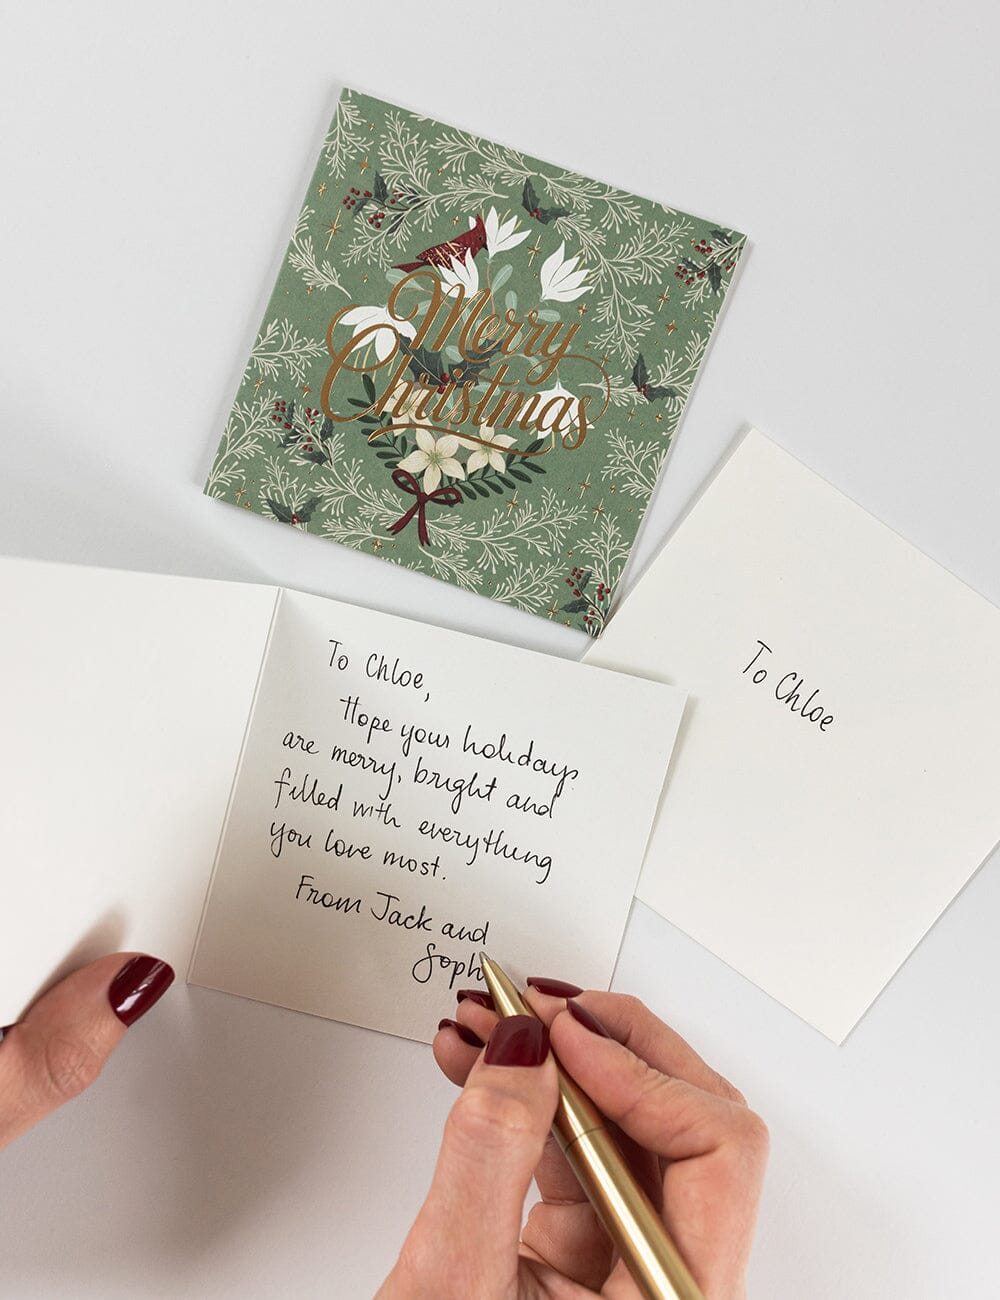 Merry
Christmas
To Chloe,
Hope your holidays
are merry, bright and
filled with everything
you love most.
From Jack and
Soph
To Chloe